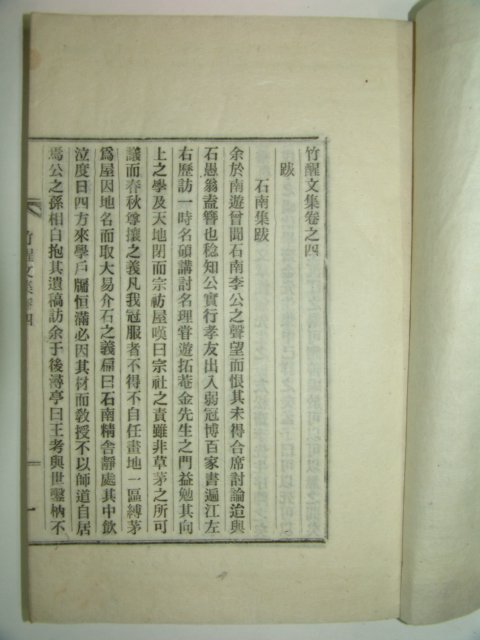 竹醒文集卷之四
跋
石南集跋
余於南遊曾聞石南李公之聲望而恨其未得合席討論迨與
石愚翁盍簪也稔知公實行孝友出入弱冠博百家書遍江左
右歷訪一時名碩講討名理嘗遊拓菴金先生之門益勉其向
上之學及天地閉而宗祊屋嘆曰宗社之責雖非草茅之所可
議而春秋尊攘之義凡我冠服者不得不自任晝地一區縛茅
爲屋因地名而取大易介石之義扁曰石南精舍靜處其中飮
泣度日四方來學戶屨恒滿必因其材而敎授不以師道自居
焉公之孫相白抱其遺稿訪余于後溥亭曰王考與世鑿枘不
竹醒文集卷四
一